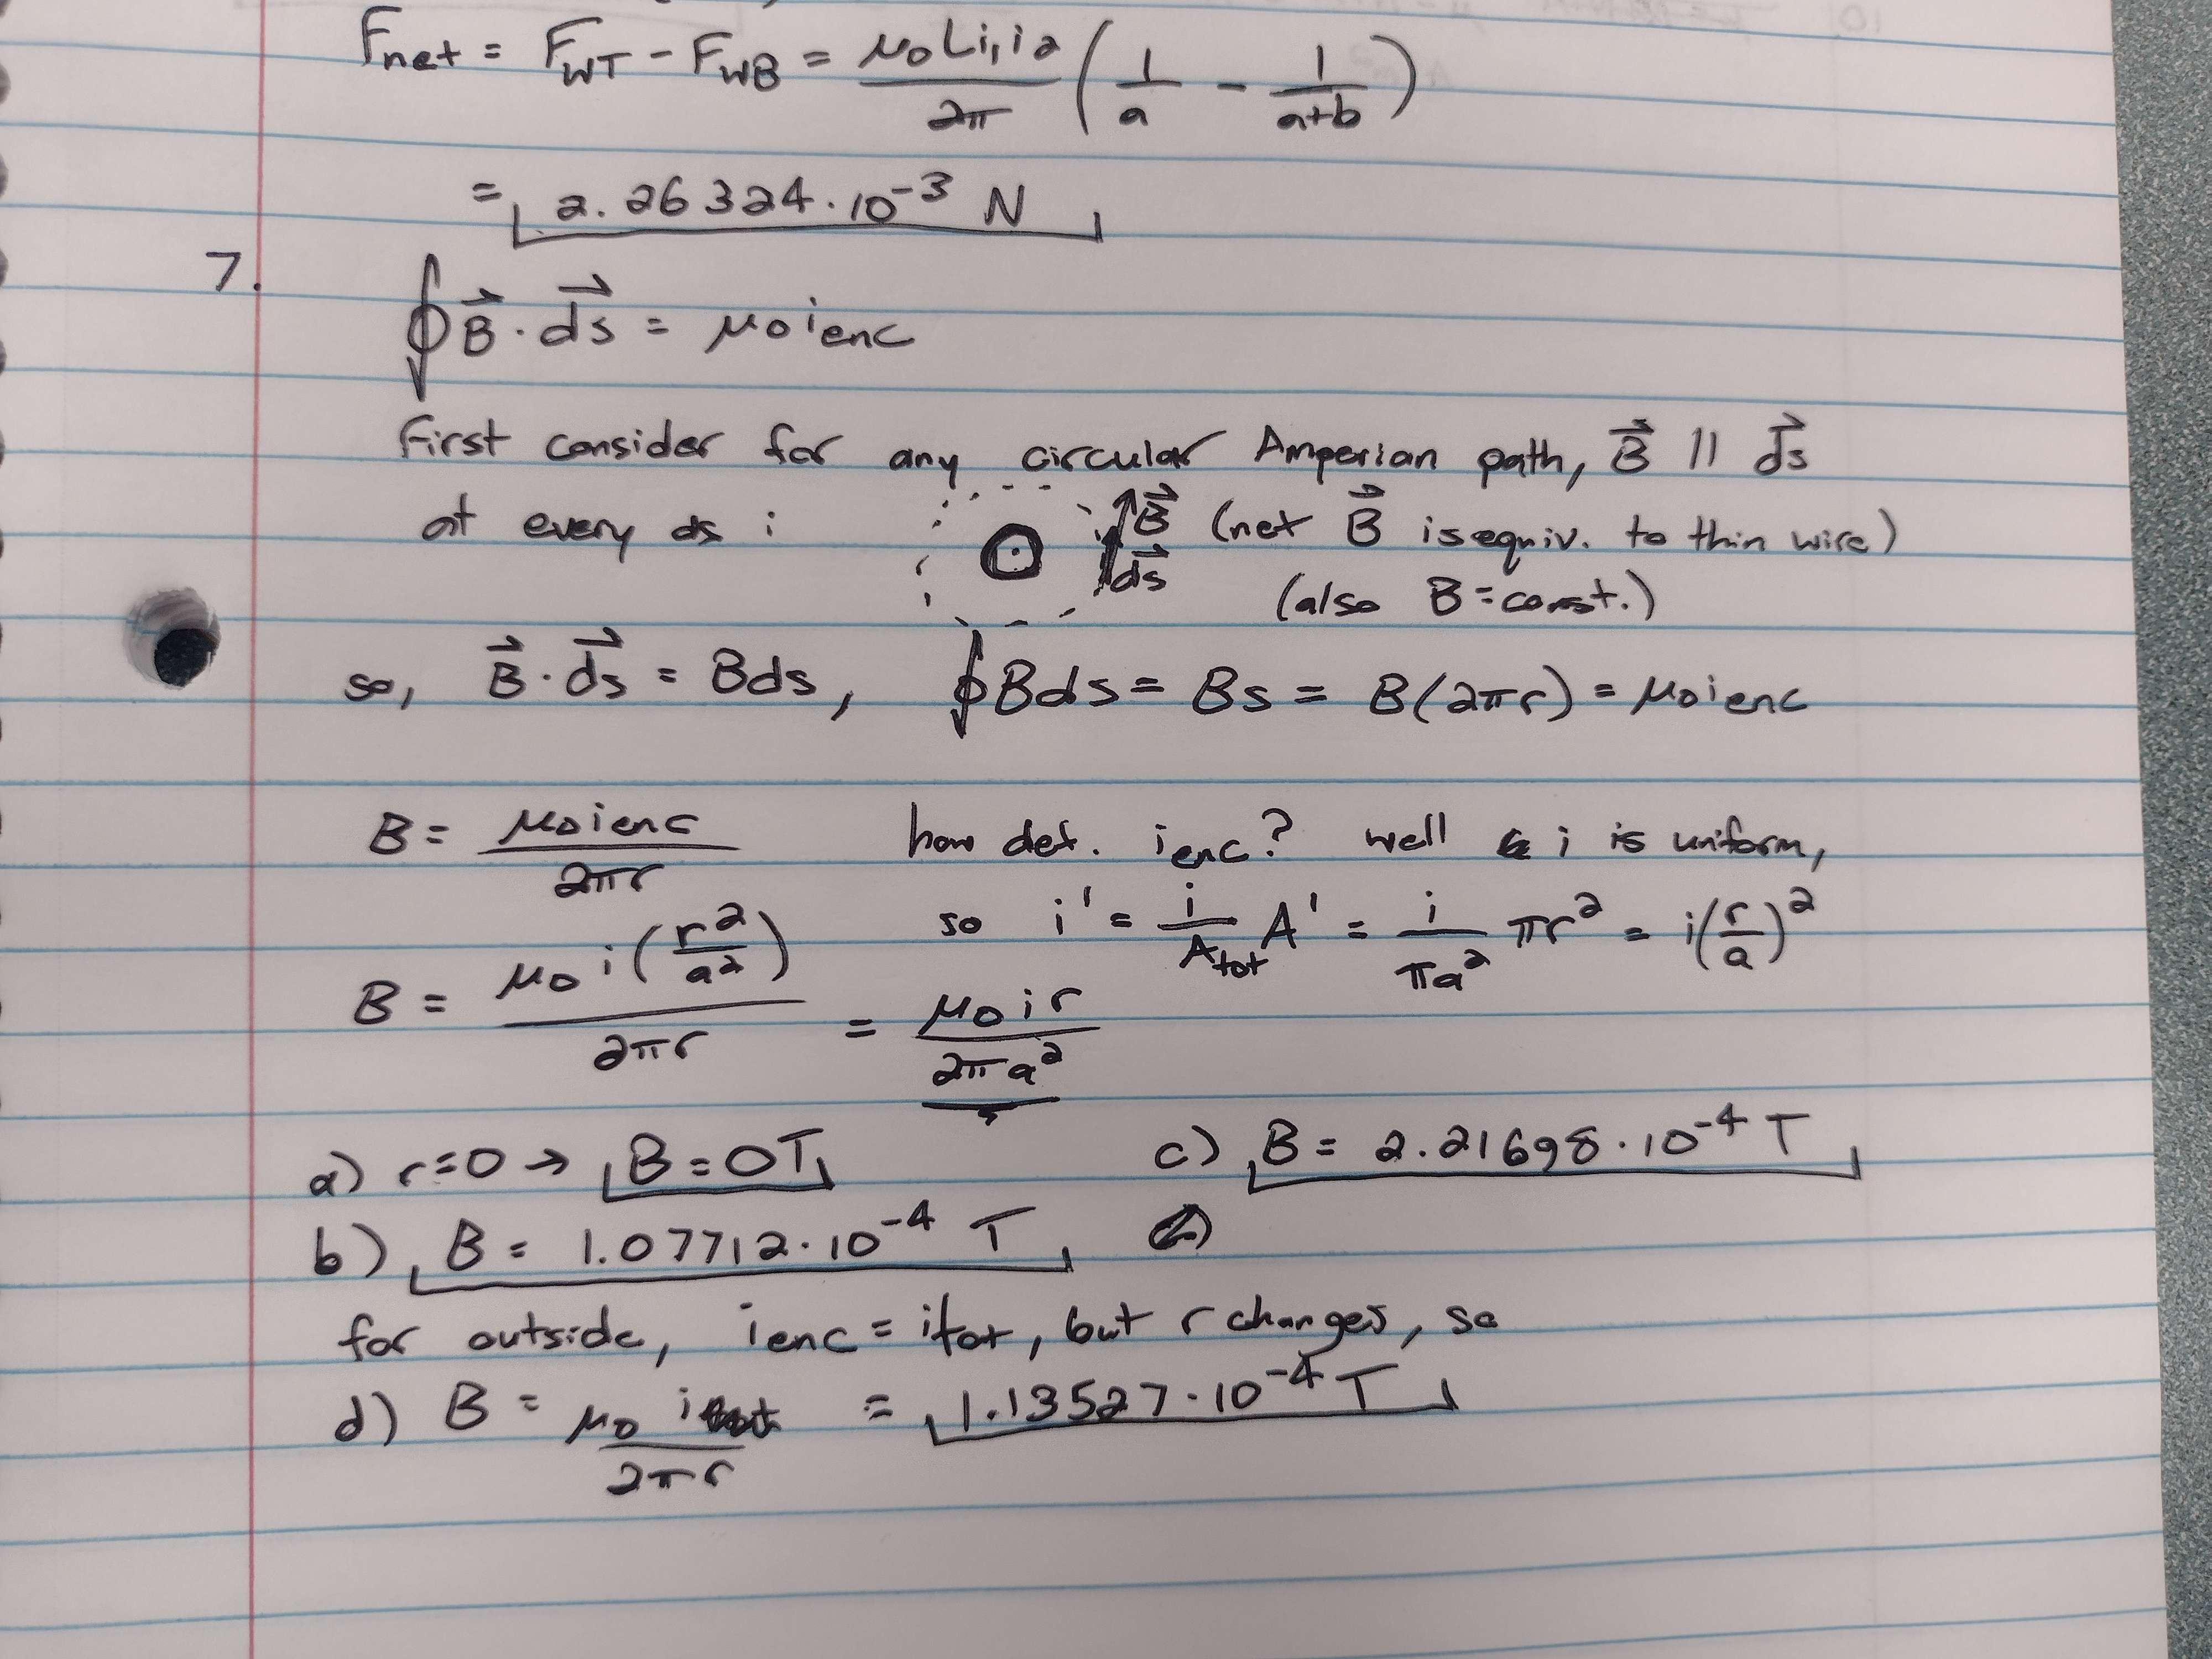 Fnet = FWT - FWB = μ0Li1i2/2π (1/a - 1/a+b)
= 2.26324·10⁻³ N
7.
∮B⃗·ds⃗ = μ0ienc
First consider for any circular Amperian path, B⃗ || ds⃗
at every ds : B⃗ ds⃗ (net B⃗ is equiv. to thin wire)
(also B=const.)
so, B⃗·ds⃗ = Bds, ∮Bds = Bs = B(2πr) = μ0ienc
B = μ0ienc/2πr how det. ienc? well i is uniform,
so i' = i/Atot A' = i/πa² πr² = i(r/a)²
B = μ0i(r²/a²)/2πr = μ0ir/2πa²
a) r=0 → B=0T c) B = 2.21698·10⁻⁴ T
b) B = 1.07712·10⁻⁴ T
for outside, ienc = itot, but r changes, so
d) B = μ0 i/2πr = 1.13527·10⁻⁴ T